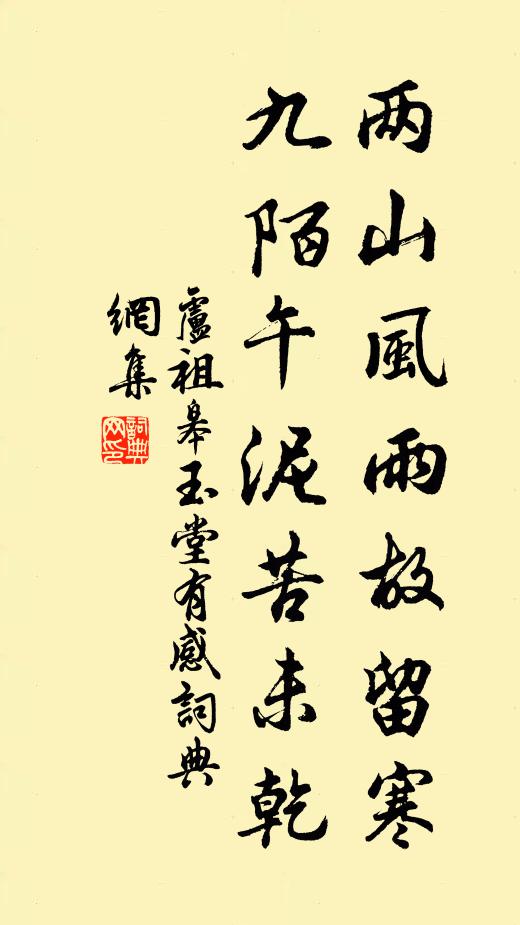 两山風雨故留寒
九陌午泥苦未乾
盧祖皋玉堂有感詞典
網集
詞典
网印